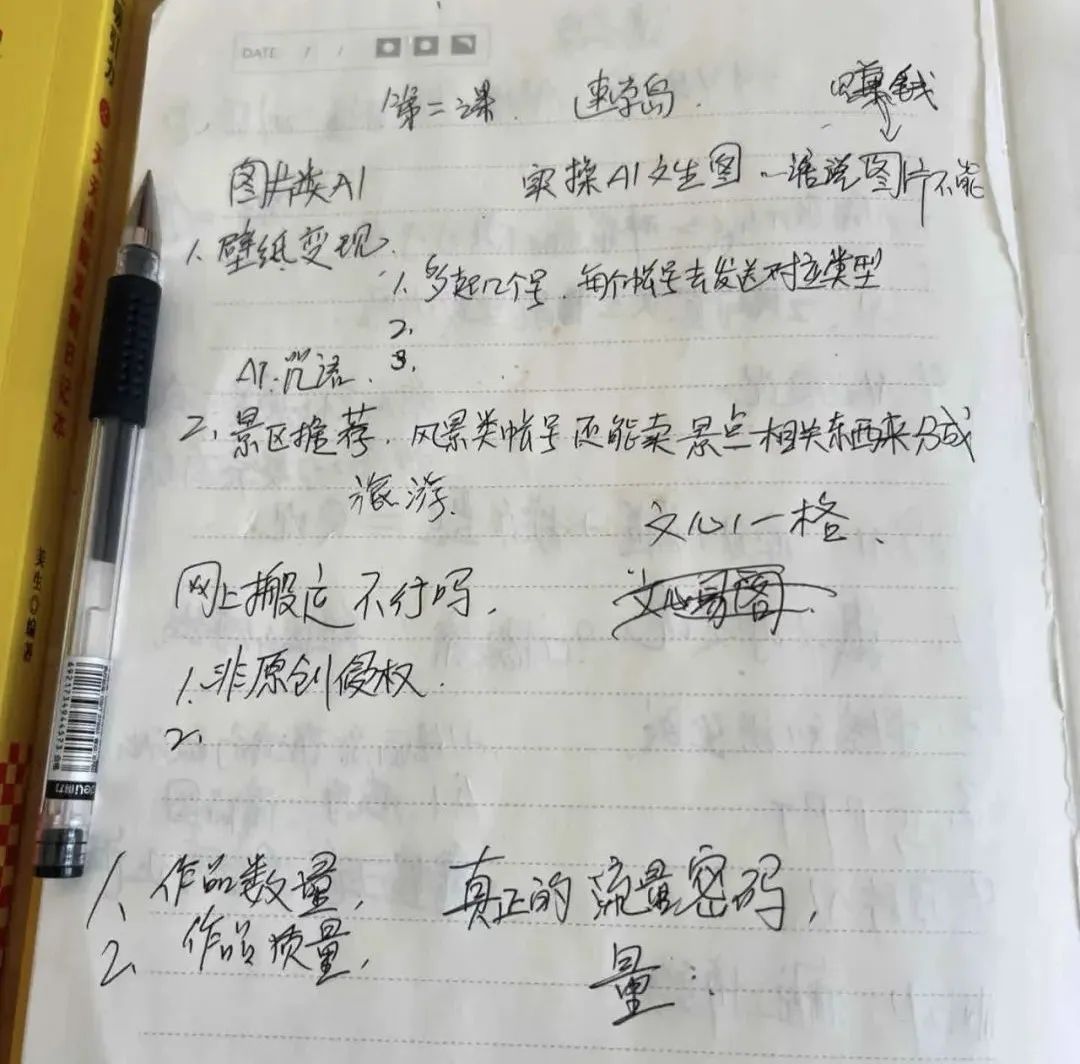 DATE / /
第二课. 速学岛. 赚钱
图片类AI 实操AI文生图 谁说图片不能
1. 壁纸变现.
1. 多起几个号, 每个帐号去发送对应类型
2.
AI:咒语. 3.
2. 景区推荐, 风景类帐号还能卖景点相关东西来分成
旅游.
文心一格、
网上搬运不行吗,
1. 非原创侵权.
2.
1、作品数量, 真正的流量密码,
2、作品质量,
量:
美生◎编著
6921734944573
deli得力